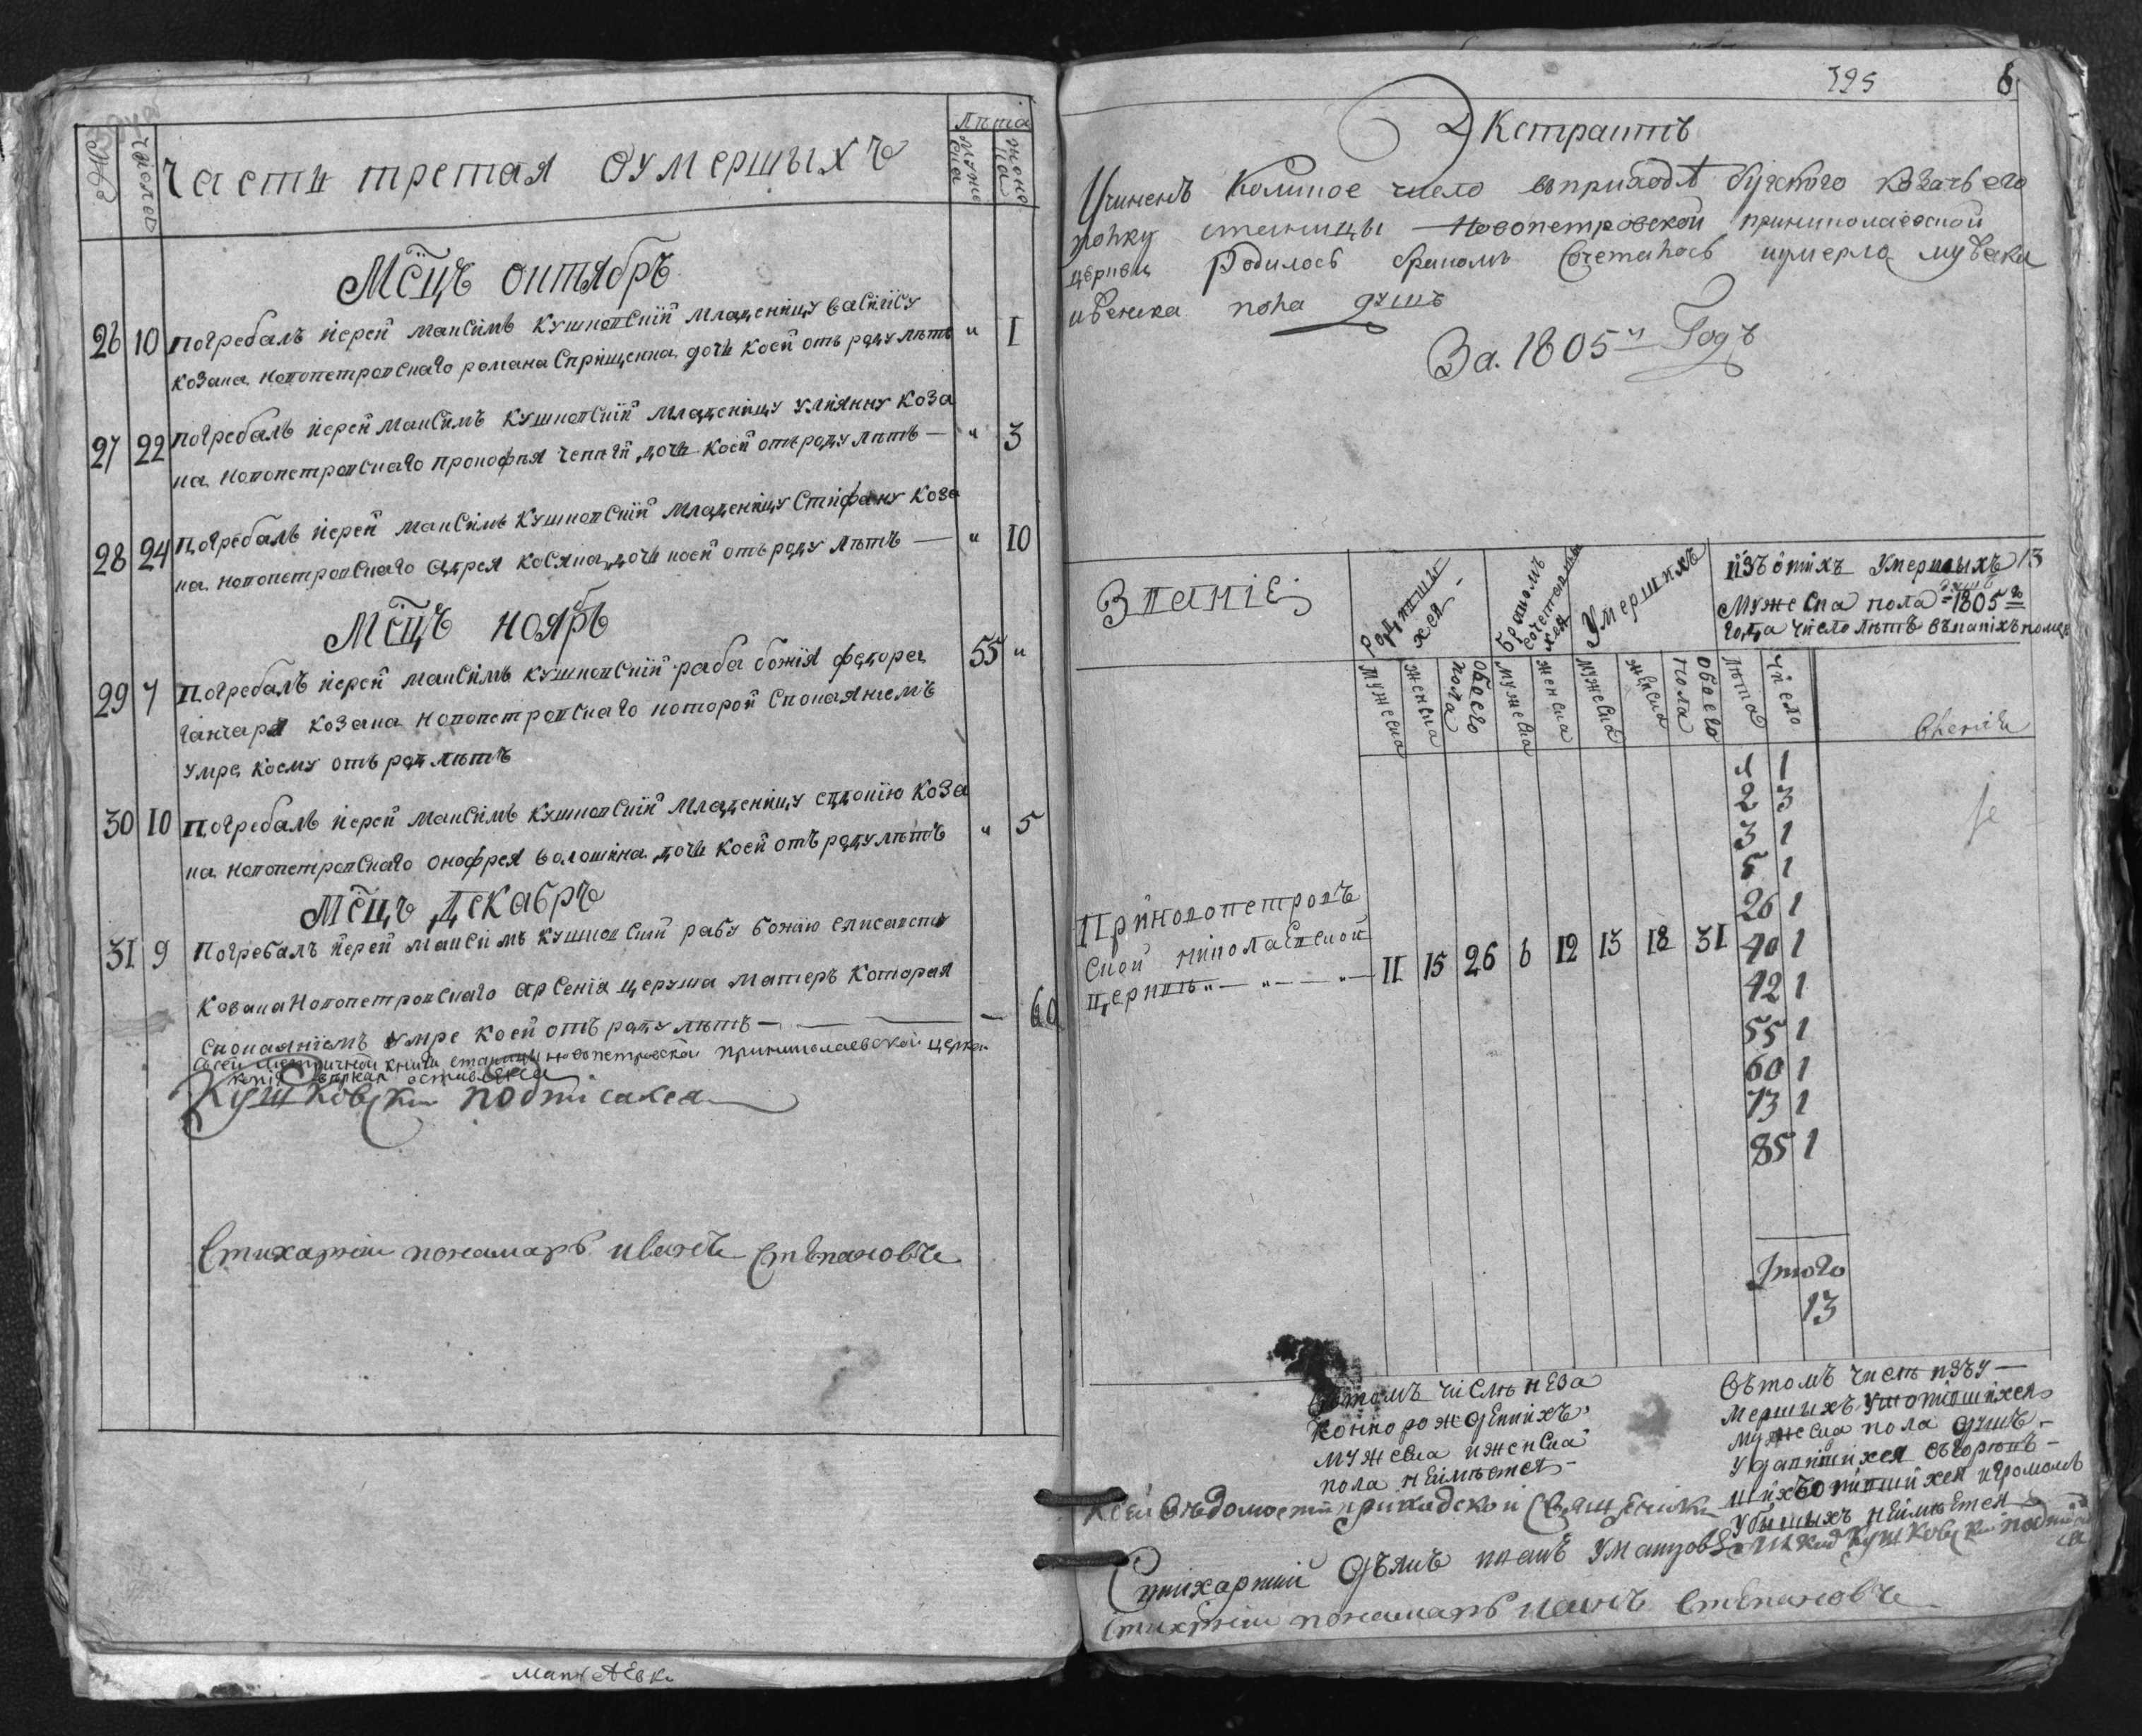 Части третая оумершыхъ
Лѣта
мужеска
женска
число
Мсцъ октябръ
26 10 погребалъ иерей Максимъ Кушковский младеницу Василису
козака новопетровскаго романа Сприщенка дочь коей отъ роду лѣтъ " 1
27 22 погребалъ иерей Максимъ Кушковский младеницу улиянну коза
ка новопетровскаго прокофия чепѣги дочь коей отъ роду лѣтъ — " 3
28 24 погребалъ иерей Максимъ Кушковский младеницу Стифану коза
ка новопетровскаго андрея косяка дочь коей отъ роду лѣтъ — " 10
Мсцъ ноябръ
29 7 погребалъ иерей Максимъ Кушковский раба божия федора
ганчаря козака новопетровскаго которой спокаяниемъ
умре коему отъ род лѣтъ 55 "
30 10 погребалъ иерей Максимъ Кушковский младеницу евдокию коза
ка новопетровскаго онофрея волошина дочь коей отъ роду лѣтъ " 5
Мсцъ декабръ
31 9 погребалъ иерей Максимъ Кушковский рабу божию елисавету
козака новопетровскаго арсения церуша матеръ которая
спокаяниемъ умре коей отъ роду лѣтъ — — 60
Ксей метричной книги станицы новопетровской приниколаевской церкви
Кушковский подписался
Стихарний понамаръ иванъ Степановъ
395 6
Экстрактъ
Учиненъ коликое число въприходѣ бугского козачьего
полку станицы Новопетровской приниколаевской
церкви родилось бракомъ сочеталось иумерло мужска
иженска пола душъ
За 1805й Годъ
Звание
родившихся
бракомъ сочетавшихся
умершихъ
изъ оныхъ умершыхъ 13
мужеска пола душъ 1805го
года число лѣтъ
мужеска
женска
обоего пола
мужеска
женска
мужеска
женска
обоего пола
лѣта
число
1 1
2 3
3 1
5 1
26 1
40 1
42 1
55 1
60 1
73 1
85 1
Приновопетров
ской николаевской
церквѣ " — " — — " — 11 15 26 6 12 13 18 31
Итого
13
Вътомъ числѣ неза
коннорожденнихъ
мужеска иженска
пола неимѣется —
Вътомъ числѣ изъу —
мершыхъ утопившихся
мужеска пола душъ —
удавившихся
игромомъ
убытыхъ неимѣется
Ксей вѣдомости приходской священникъ Кушковский подписался
Стихарний дякъ иванъ
Стихарний понамаръ иванъ Степановъ